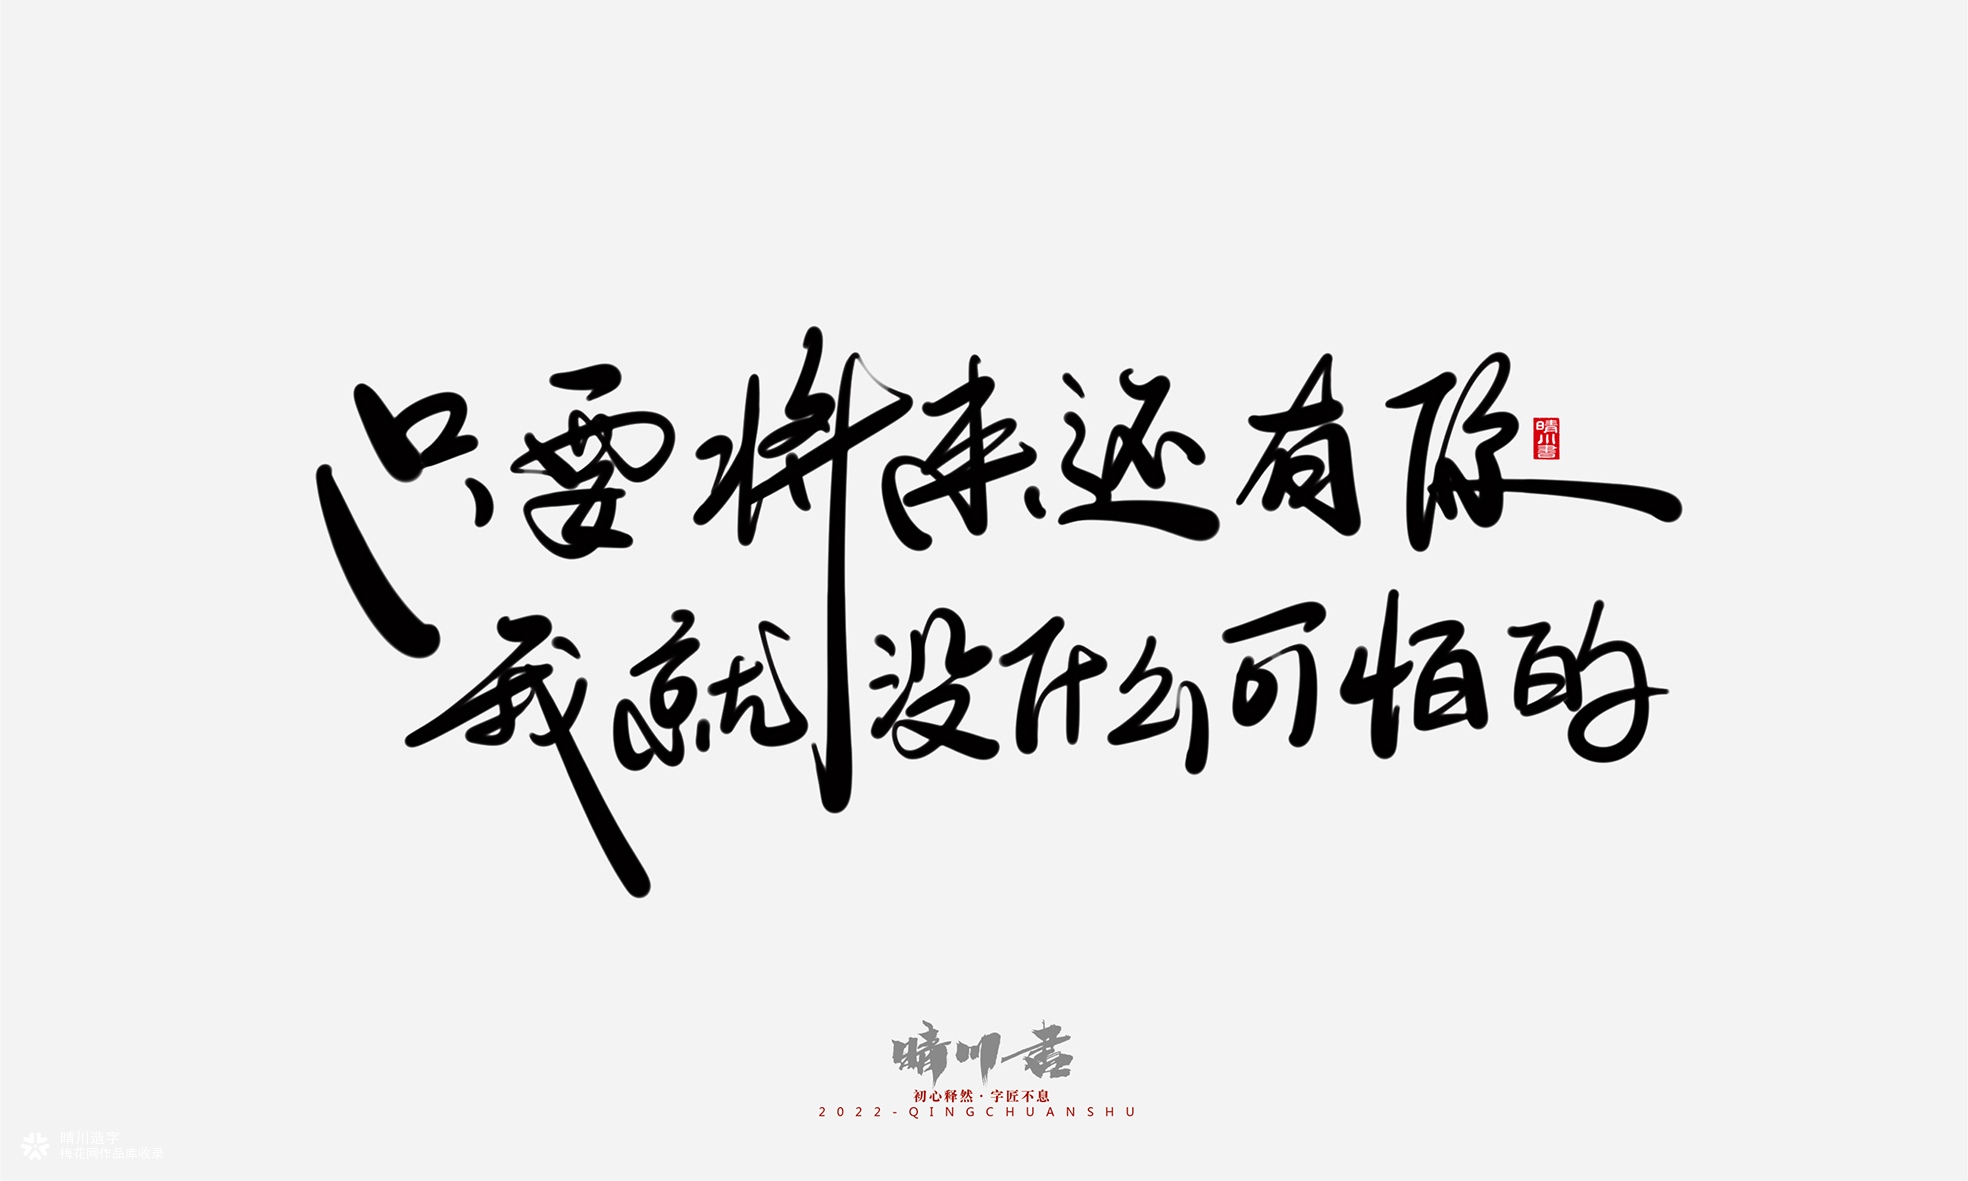 只要将来还有你
晴川書
我就没什么可怕的
晴川書
初心释然·字匠不息
2022-QINGCHUANSHU
晴川造字
梅花网作品库收录